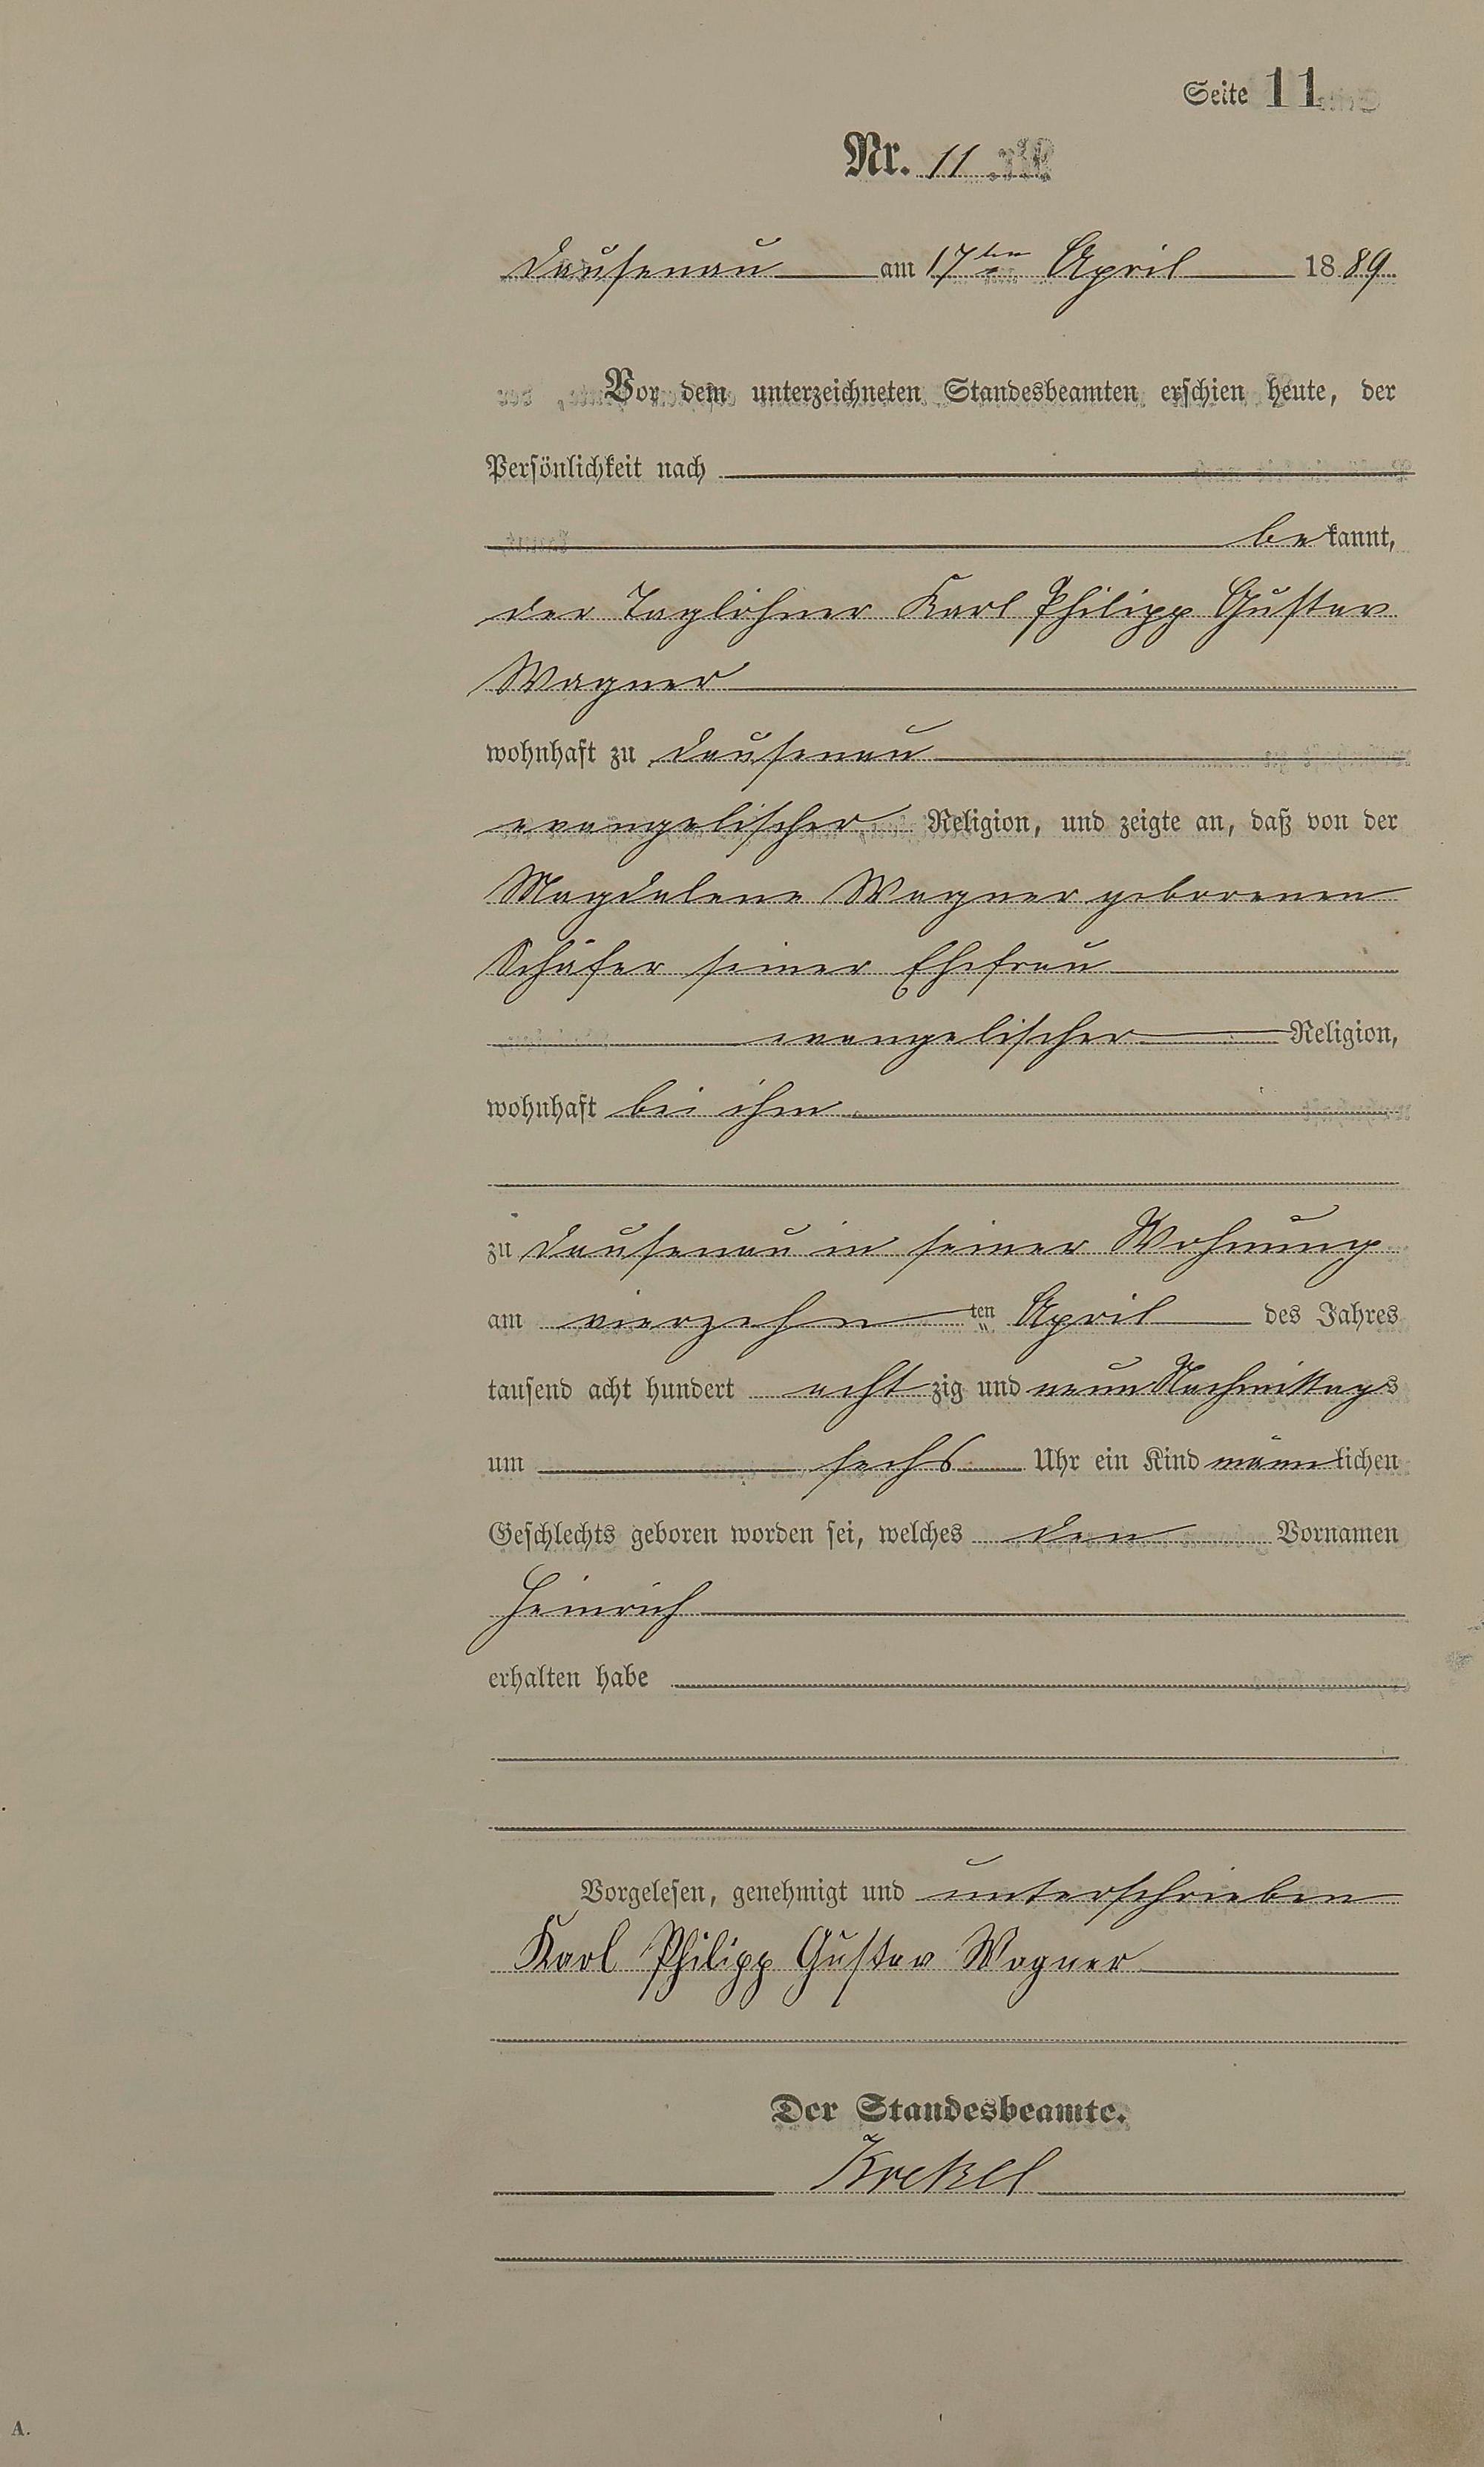 Seite 11
Nr. 11
Dausenau am 17ten April 1889
Vor dem unterzeichneten Standesbeamten erschien heute, der
Persönlichkeit nach
bekannt,
der Taglöhner Karl Philipp Gustav
Wagner
wohnhaft zu Dausenau
evangelischer Religion, und zeigte an, daß von der
Magdalene Wagner geborenen
Schäfer seiner Ehefrau
evangelischer Religion,
wohnhaft bei ihm
zu Dausenau in seiner Wohnung
am vierzehnten April des Jahres
tausend acht hundert achtzig und neun Nachmittags
um sechs Uhr ein Kind männlichen
Geschlechts geboren worden sei, welches den Vornamen
Heinrich
erhalten habe
Vorgelesen, genehmigt und unterschrieben
Karl Philipp Gustav Wagner
Der Standesbeamte.
Krekel
A.